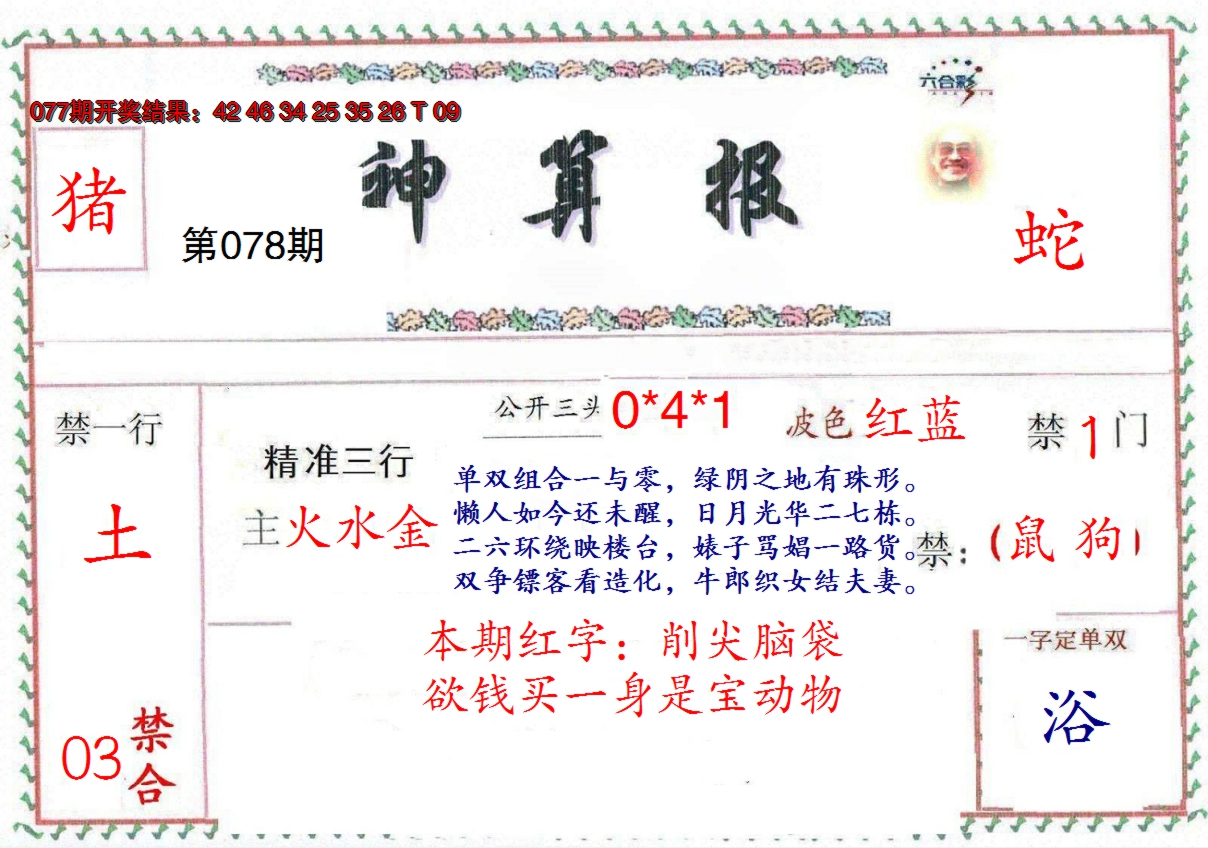 077期开奖结果：42 46 34 25 35 26 T 09
六合彩
猪
第078期
神算报
蛇
禁一行
土
03
禁合
精准三行
主火水金
公开三头 0*4*1
波色 红蓝
禁1门
单双组合一与零，绿阴之地有珠形。
懒人如今还未醒，日月光华二七栋。
二六环绕映楼台，婊子骂娼一路货。
双争镖客看造化，牛郎织女结夫妻。
禁：（鼠 狗）
本期红字：削尖脑袋
欲钱买一身是宝动物
一字定单双
浴